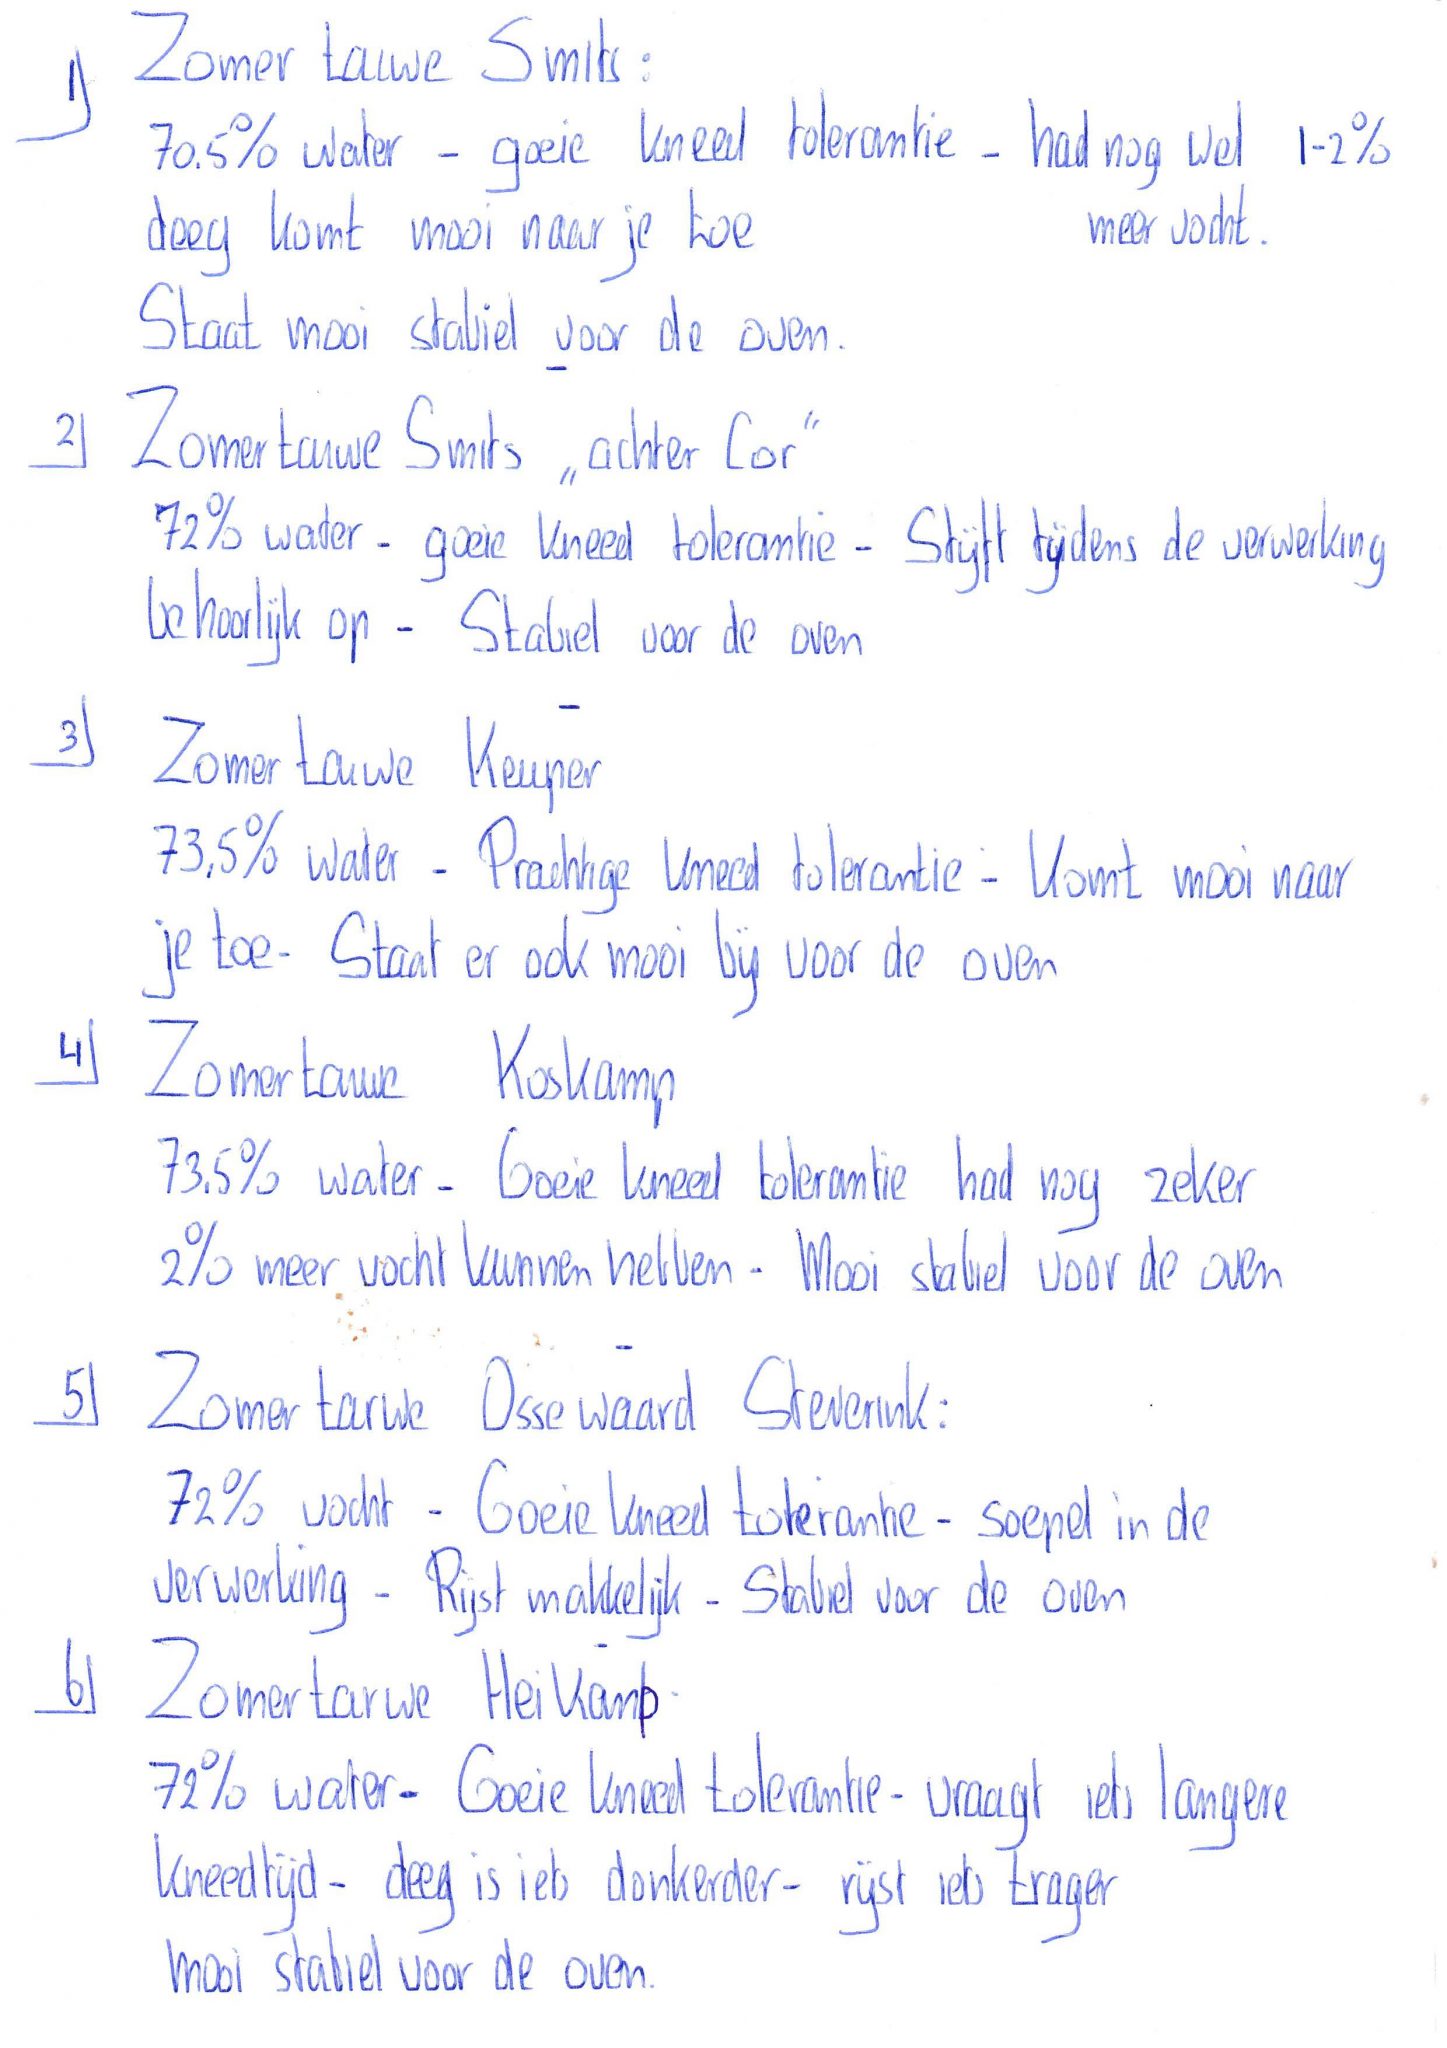 1) Zomer tarwe Smits:
70.5% water - goeie kneed tolerantie - had nog wel 1-2%
deeg komt mooi naar je toe meer vocht.
Staat mooi stabiel voor de oven.
2) Zomertarwe Smits „achter Cor”
72% water - goeie kneed tolerantie - Stijft tijdens de verwerking
behoorlijk op - Stabiel voor de oven
3) Zomertarwe Keuper
73,5% water - Prachtige kneed tolerantie - Komt mooi naar
je toe - Staat er ook mooi bij voor de oven
4) Zomertarwe Koskamp
73.5% water - Goeie kneed tolerantie had nog zeker
2% meer vocht kunnen hebben - Mooi stabiel voor de oven
5) Zomer tarwe Ossewaard Steverink:
72% vocht - Goeie kneed tolerantie - soepel in de
verwerking - Rijst makkelijk - Stabiel voor de oven
6) Zomertarwe Heikamp.
72% water - Goeie kneed tolerantie - vraagt iets langere
kneedtijd - deeg is iets donkerder - rijst iets trager
mooi stabiel voor de oven.